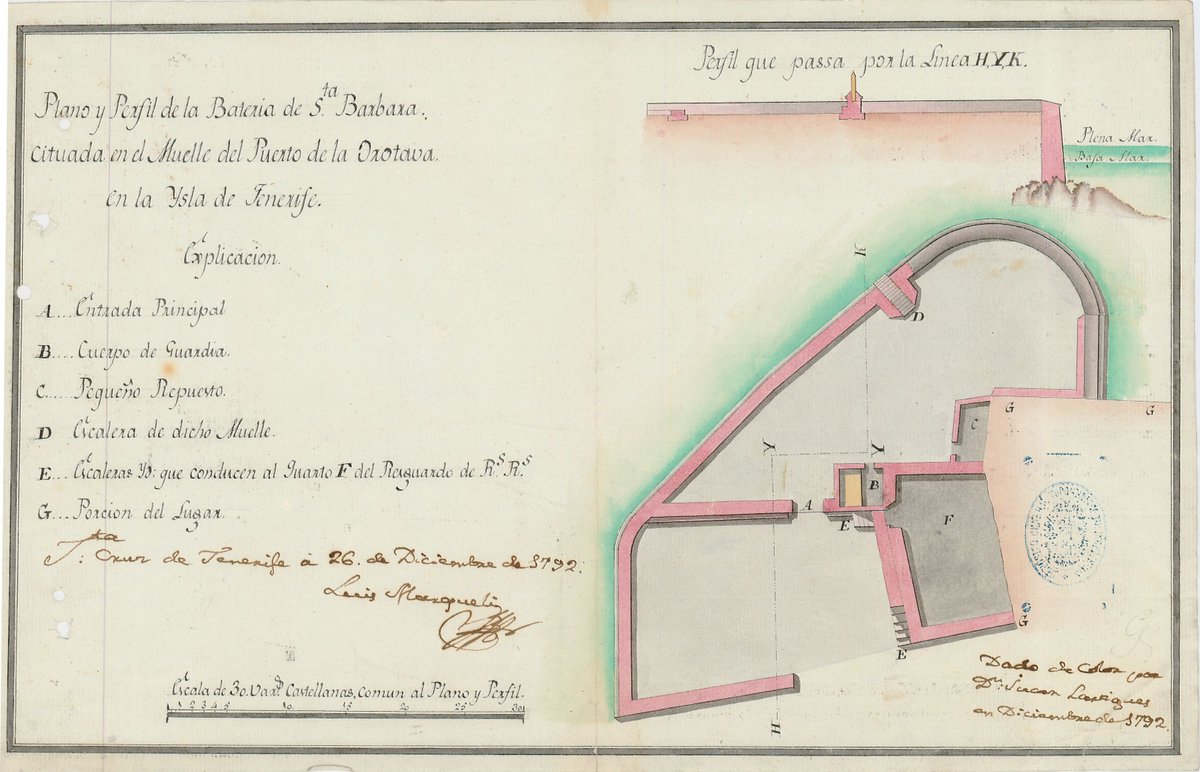 Plano y Perfil de la Bateria de Sta Barbara.
cituada en el Muelle del Puerto de la Orotava.
en la Ysla de Tenerife.
Explicacion.
A.... Entrada Principal
B..... Cuerpo de Guardia.
C..... Pequeño Repuesto.
D Escalera de dicho Muelle.
E.... Escaleras Yd. que conducen al Quarto F del Resguardo de Rs. Rs.
G... Porcion del Lugar.
Sta. Cruz de Tenerife à 26. de Diciembre de 1792.
Luis Marqueli
Escala de 30. Vars. Castellanas, comun al Plano y Perfil.
1 2 3 4 5 10 15 20 25 30
Perfil que passa por la Linea H,Y,K.
Plena Mar.
Baja Mar.
K
D
G
G
C
Y
Y
B
A
E
F
G
E
H
Dado de Color por
Dn.
en Diciembre de 1792.